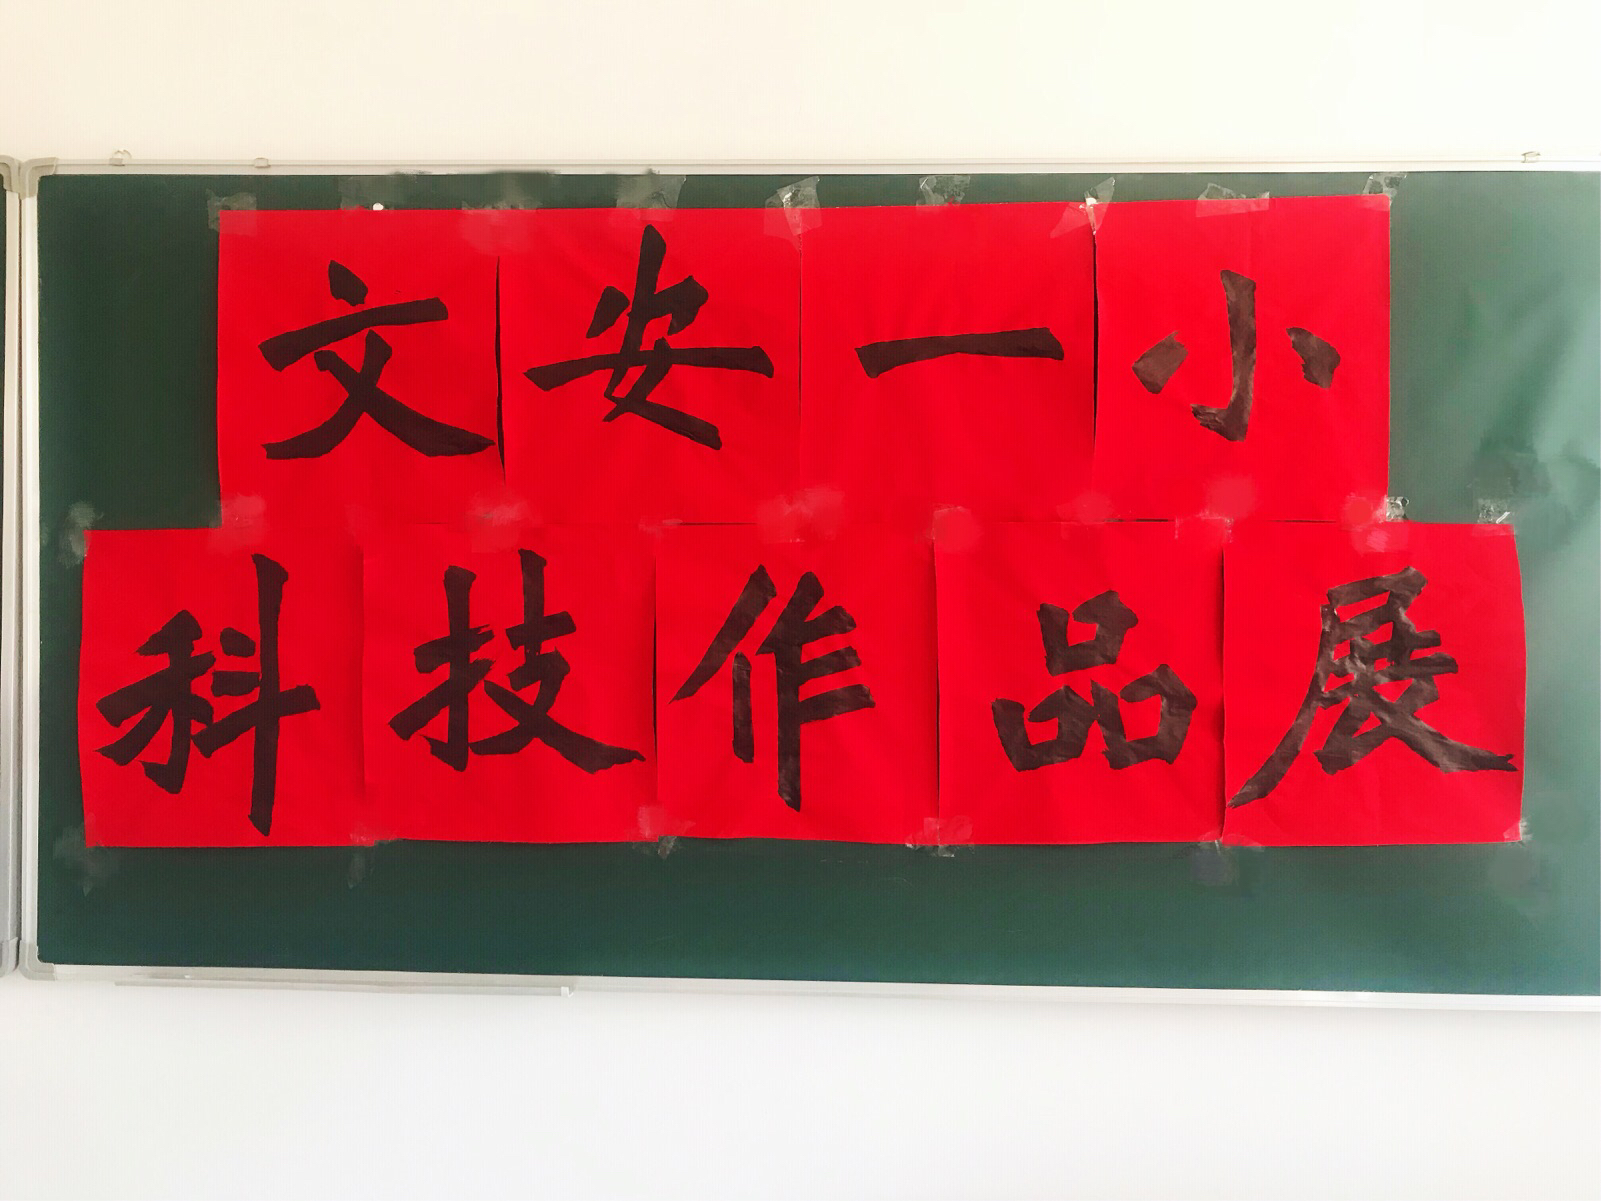 文安一小
科技作品展